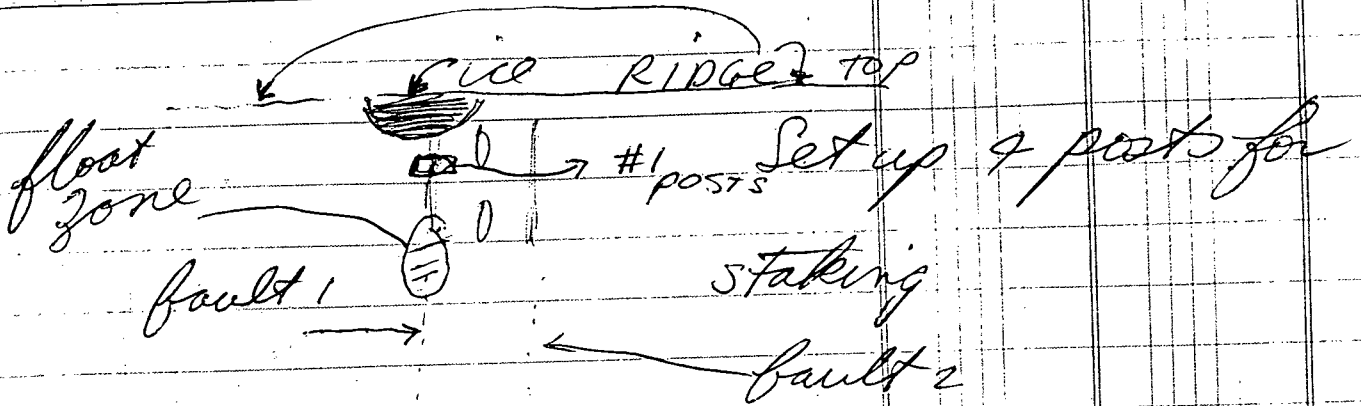 ice RIDGE TOP
float
zone
#1
posts
Set up 4 posts for
staking
fault 1
fault 2